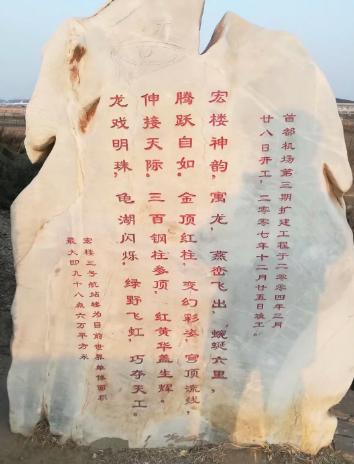 首都机场第三期扩建工程于二零零四年三月
廿八日开工，二零零七年十二月廿五日竣工。
宏楼神韵，寓龙，燕峦飞出，蜿蜒六里，
腾跃自如。金顶红柱，变幻彩姿，宫顶流线，
伸接天际。三百钢柱参顶，红黄华盖生辉。
龙戏明珠，龟湖闪烁，绿野飞虹，巧夺天工。
宏楼三号航站楼为目前世界单体面积
最大的九十八点六万平方米